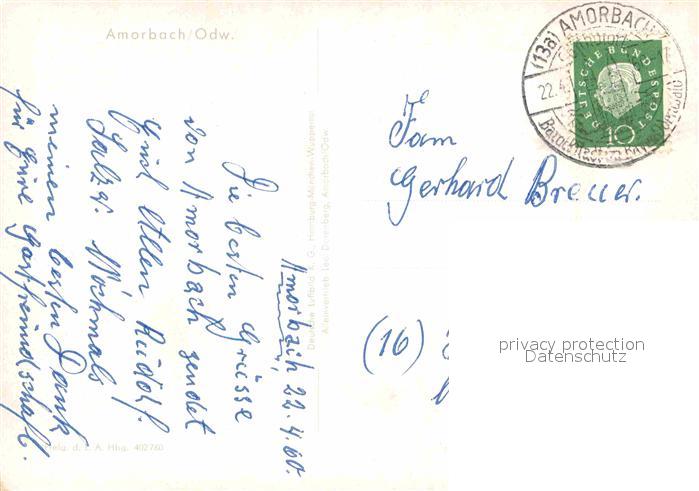 Amorbach/Odw.
Amorbach 22.4.60.
Die besten Grüsse
von Amorbach sendet
Euch Allen Rudolf
Salzer. Nochmals
meinen besten Dank
für Eure Gastfreundschaft.
Deutsche Luftbild K. G., Hamburg-München-Wuppertal
Alleinvertrieb Leo Dorenberg, Amorbach/Odw.
Frglg. d. L. A. Hbg. 402760
(13a) AMORBACH
22.4.
DEUTSCHE BUNDESPOST
10
Fam
Gerhard Breuer.
(16)
privacy protection
Datenschutz